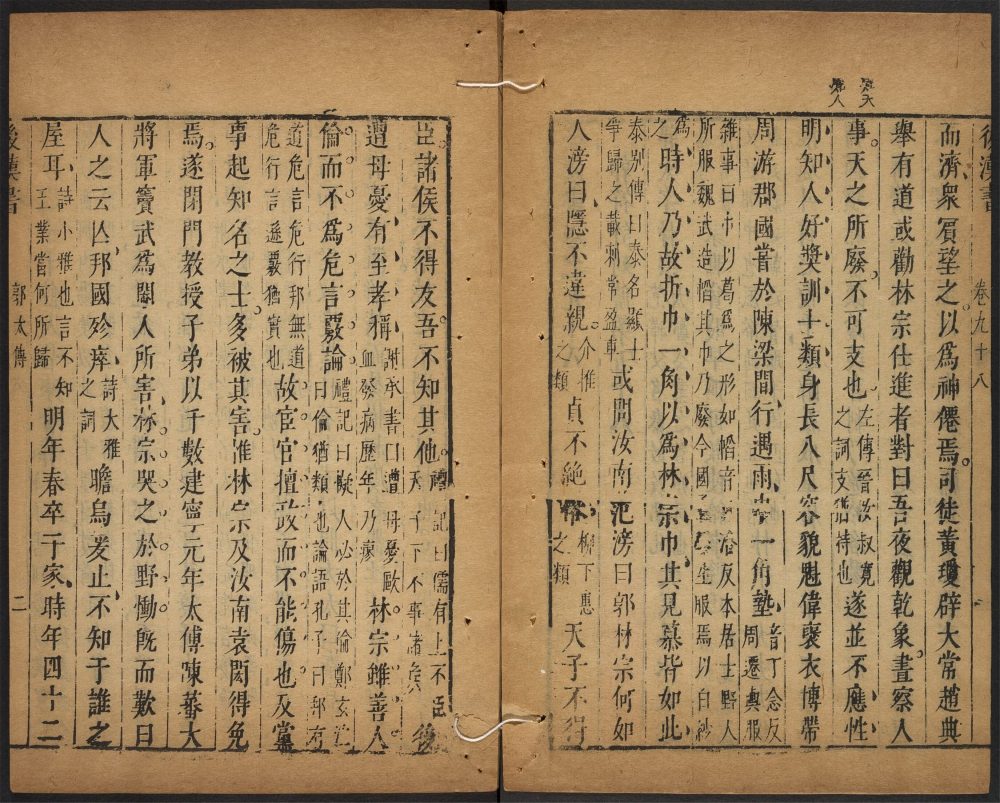 後漢書　卷九十八
而濟衆賔望之以爲神僊焉司徒黃瓊辟大常趙典
舉有道或勸林宗仕進者對曰吾夜觀乾象晝察人
事天之所廢不可支也左傳晉汝叔寬之詞支猶持也遂並不應性
明知人好奬訓士類身長八尺容貌魁偉裦衣博帶
周游郡國嘗於陳梁間行遇雨巾一角墊音丁念反周遷輿服
雜事曰巾以葛爲之形如幍音口洽反本居士野人
所服魏武造幍其巾乃廢今國子學生服焉以白紗
爲之時人乃故折巾一角以爲林宗巾其見慕皆如此
泰别傳曰泰名顯士
爭歸之載刺常盈車或問汝南范滂曰郭林宗何如
人滂曰隱不違親介推之類貞不絶俗柳下惠之類天子不得
臣諸侯不得友吾不知其他禮記曰儒有上不臣天子下不事諸侯後
遭母憂有至孝稱謝承書曰遭母憂歐血發病歷年乃瘳林宗雖善人
倫而不爲危言覈論禮記曰儗人必於其倫鄭玄注曰倫猶類也論語孔子曰邦有
道危言危行邦無道
危行言遜覈猶實也故宦官擅政而不能傷也及黨
事起知名之士多被其害惟林宗及汝南袁閎得免
焉遂閉門教授子弟以千數建寧元年太傅陳蕃大
將軍竇武爲閹人所害林宗哭之於野慟旣而歎曰
人之云亾邦國殄瘁詩大雅之詞瞻烏爰止不知于誰之
屋耳詩小雅也言不知王業當何所歸明年春卒于家時年四十二
後漢書　郭太傳　二